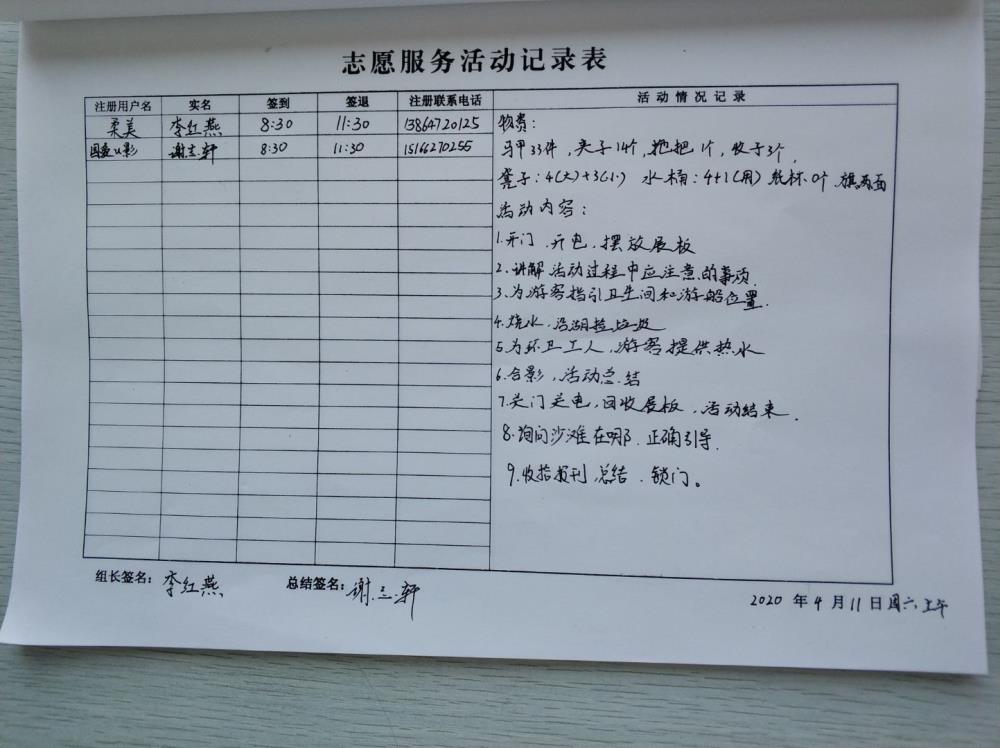 志愿服务活动记录表
注册用户名 实名 签到 签退 注册联系电话 活动情况记录
柔美 李红燕 8:30 11:30 13864720125
谢立轩 8:30 11:30 15166270255
物资:
马甲33件,夹子14个,拖把1个,牧子3个,
凳子:4(大)+3(小) 水桶:4+1(用) 纸杯0个 旗两面
活动内容:
1.开门、开电、摆放展板
2.讲解活动过程中应注意的事项.
3.为游客指引卫生间和游船位置.
4.烧水,沿湖捡垃圾
5.为环卫工人,游客提供热水
6.合影,活动总结
7.关门关电,回收展板,活动结束.
8.询问沙滩在哪.正确引导.
9.收拾报刊.总结.锁门。
组长签名:李红燕 总结签名:谢立轩
2020年4月11日周六上午